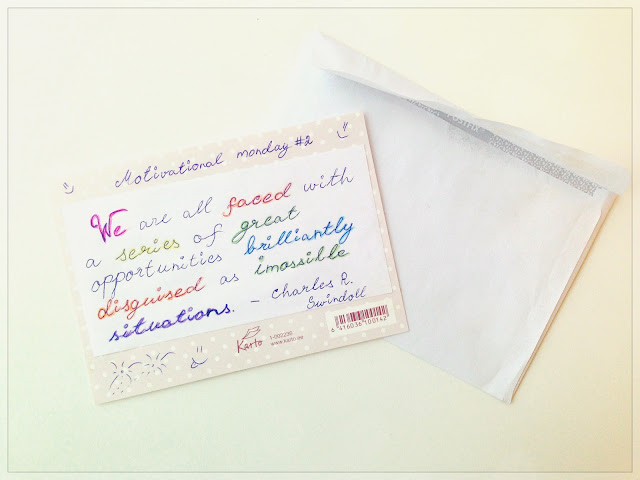 Motivational monday #2
We are all faced with
a series of great
opportunities brilliantly
disguised as imossible
situations. - Charles R.
Swindoll
Karto
www.karto.ee
6 416036 100142